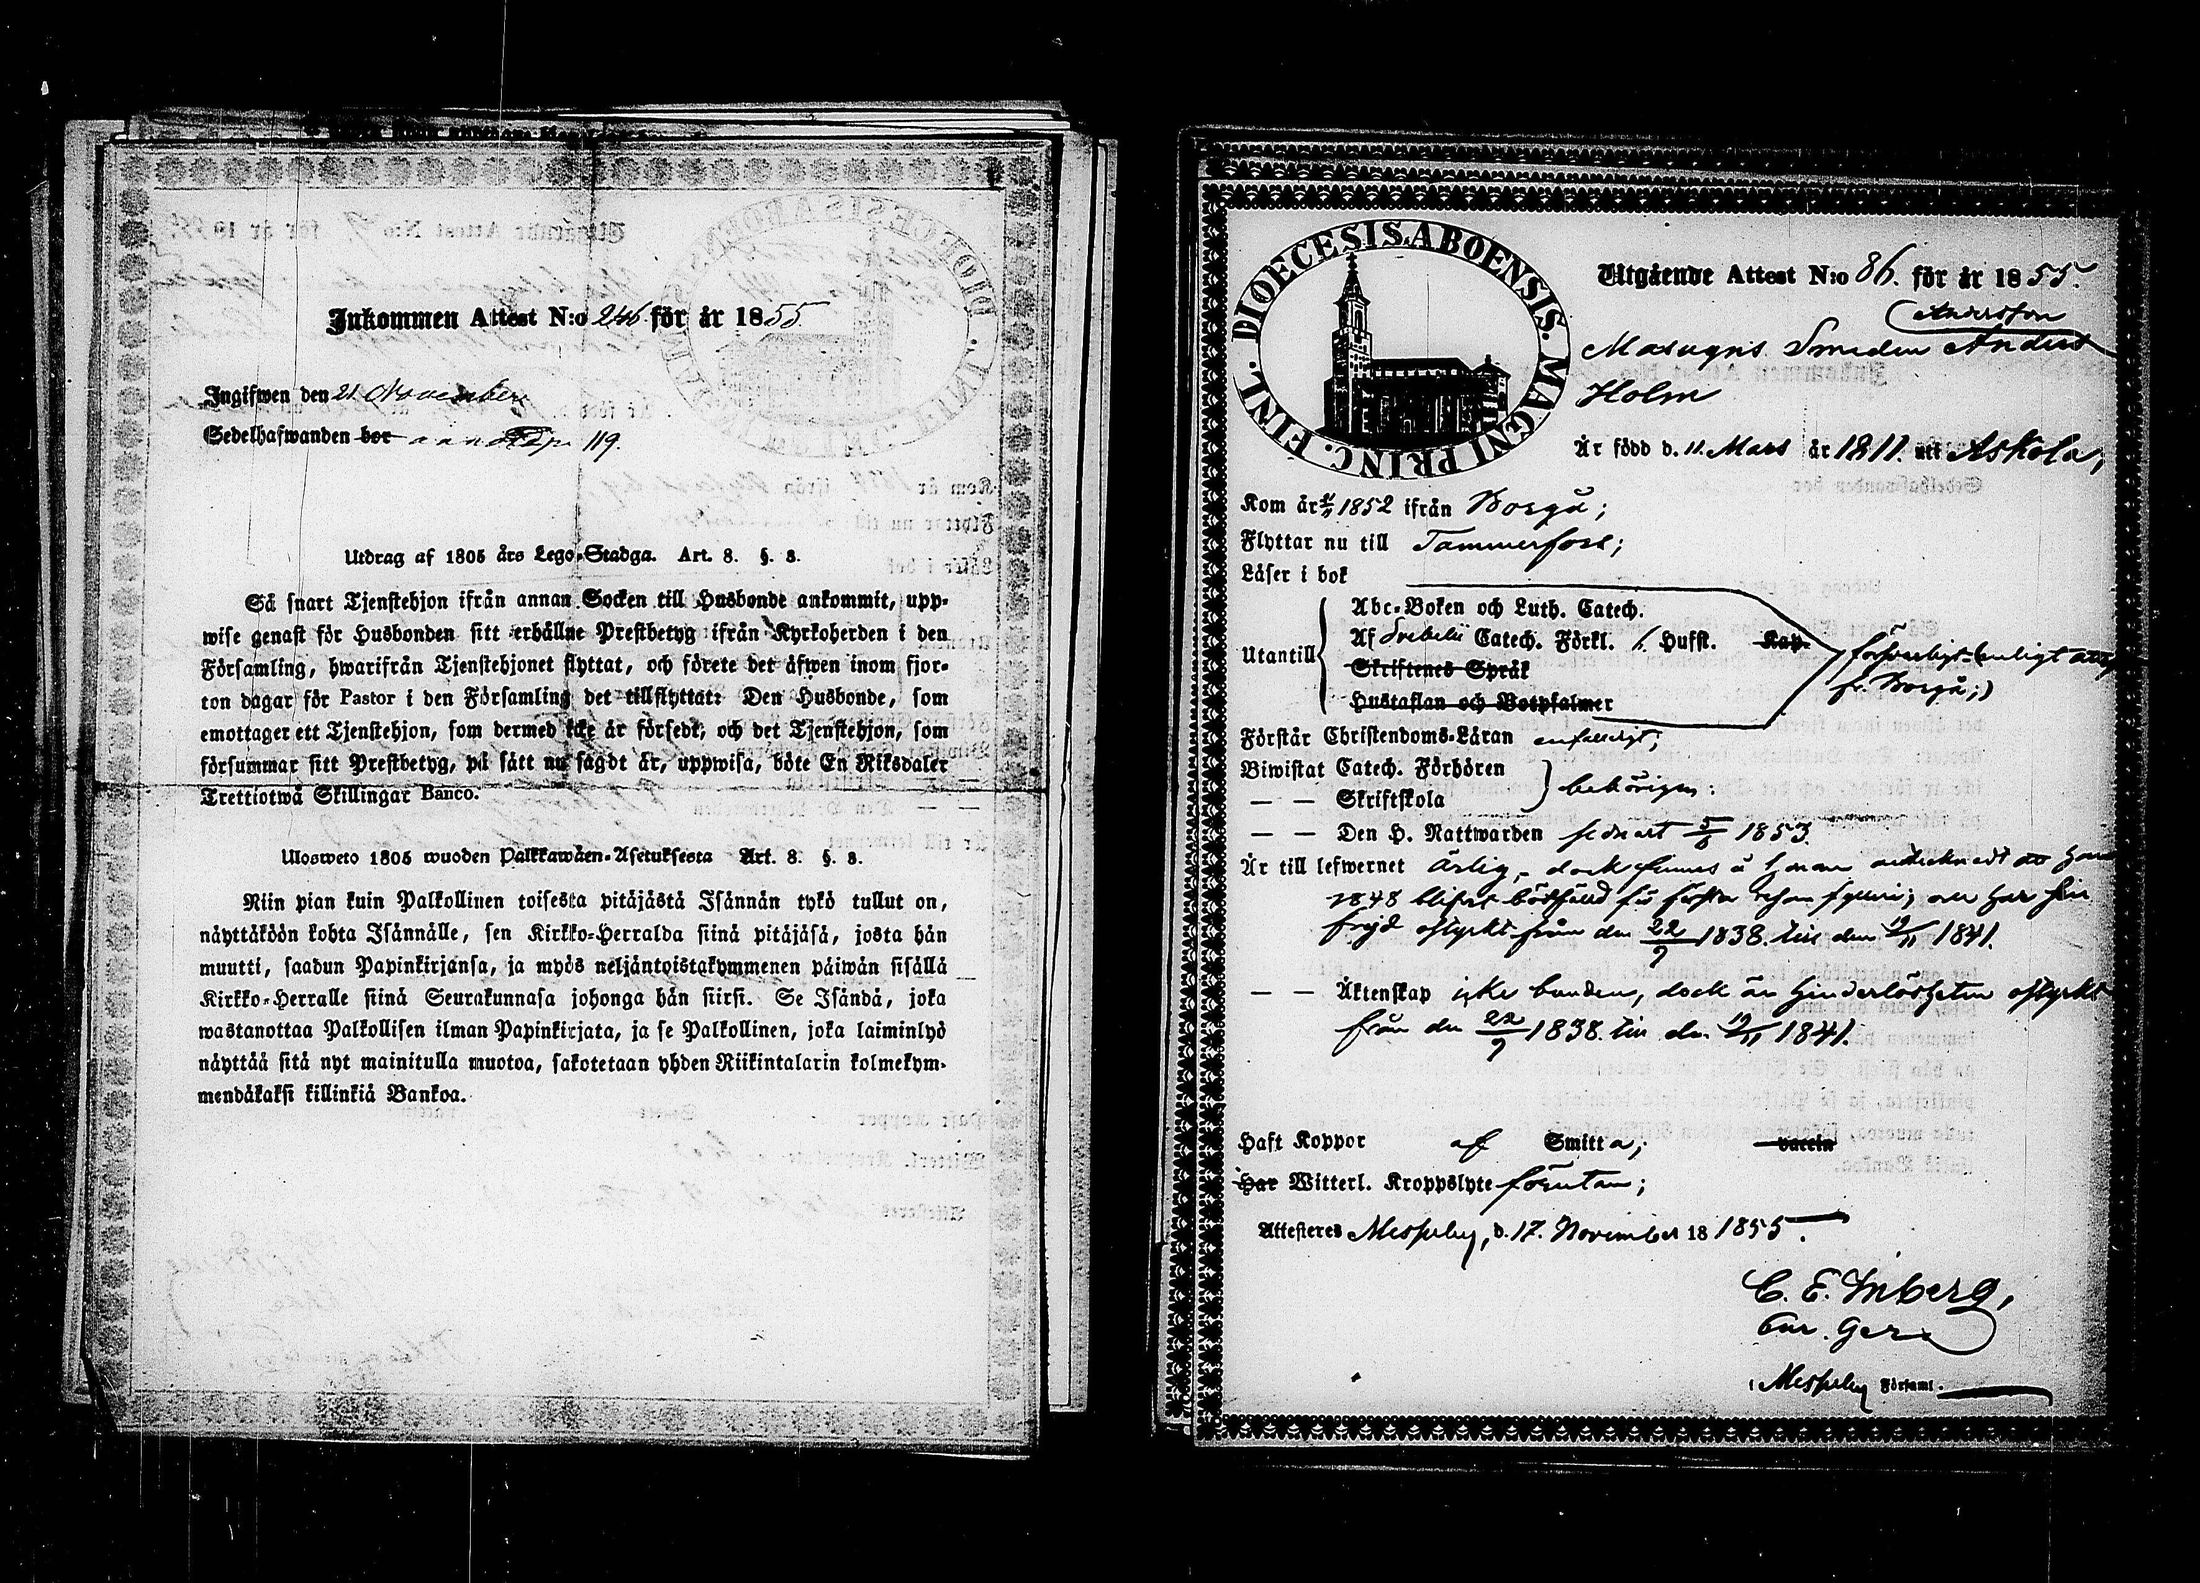 Inkommen Attest N:o 246 för år 1855.
Ingifwen den 21 November
Sedelhafwanden bor 119.
Utdrag af 1805 års Lego-Stadga. Art. 8. §. 8.
Så snart Tjenstehjon ifrån annan Socken till Husbonde ankommit, upp-
wise genast för Husbonden sitt erhållne Prestbetyg ifrån Kyrkoherden i den
Församling, hwarifrån Tjenstehjonet flyttat, och förete det äfwen inom fjor-
ton dagar för Pastor i den Församling det tillflyttat: Den Husbonde, som
emottager ett Tjenstehjon, som dermed icke är försedt, och det Tjenstehjon, som
försummar sitt Prestbetyg, på sätt nu sagdt är, uppwisa, böte En Riksdaler
Trettiotwå Skillingar Banco.
Ulosweto 1805 wuoden Palkkawäen-Asetuksesta Art. 8. §. 8.
Niin pian kuin Palkollinen toisesta pitäjästä Isännän tykö tullut on,
näyttäköön kohta Isännälle, sen Kirkko-Herralda siinä pitäjäsä, josta hän
muutti, saadun Papinkirjansa, ja myös neljäntoistakymmenen päiwän sisällä
Kirkko-Herralle siinä Seurakunnasa johonga hän siirsi. Se Isändä, joka
wastanottaa Palkollisen ilman Papinkirjata, ja se Palkollinen, joka laiminlyö
näyttää sitä nyt mainitulla muotoa, sakotetaan yhden Riikintalarin kolmekym-
mendäkaksi killinkiä Bankoa.
DIOECESIS ABOENSIS. MAGNI PRINC. FINL.
Utgående Attest N:o 86. för år 1855.
Andersson
Masugns Smeden Anders
Holm
Är född d. 11. Mars år 1811. uti Askola;
Kom år 1852 ifrån Borgå;
Flyttar nu till Tammerfors;
Läser i bok
Abc-Boken och Luth. Catech.
Utantill Af Svebelii Catech. Förkl. Hufst. Kap.
Skriftenes Språk
Hustaflan och Botpsalmer
förswarligt enligt att.
fr. Borgå;)
Förstår Christendoms-Läran enfaldigt;
Biwistat Catech. Förhören
— — Skriftskola
behörigen:
— — Den H. Nattwarden senast 5/6 1853.
Är till lefwernet ärlig, dock finnes å honom antecknadt att han
1848 blifvit bötfälld för första resan fylleri; och har sin
frejd ostyrkt från den 22/9 1838. till den 19/11 1841.
— — Äktenskap icke bunden, dock är hinderlösheten ostyrkt
från den 22/9 1838. till den 19/11 1841.
Haft Koppor af Smitta; vaccin
Har Witterl. Kroppslyte förutan;
Attesteres Messuby, d. 17. November 18 1855.
C. E. Inberg,
Cur. Ger.
i Messuby Församl.